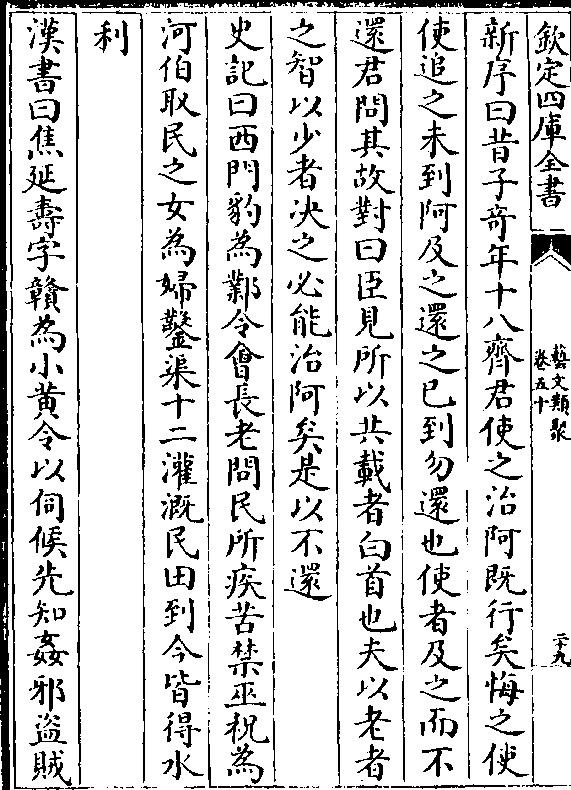 欽定四庫全書
藝文類聚
卷五十
二十九
新序曰昔子竒年十八齊君使之治阿既行矣悔之使
使追之未到阿及之還之已到勿還也使者及之而不
還君問其故對曰臣見所以共載者白首也夫以老者
之智以少者决之必能治阿矣是以不還
史記曰西門豹為鄴令會長老問民所疾苦禁巫祝為
河伯取民之女為婦鑿渠十二灌溉民田到今皆得水
利
漢書曰焦延壽字贛為小黄令以伺候先知姦邪盗賊